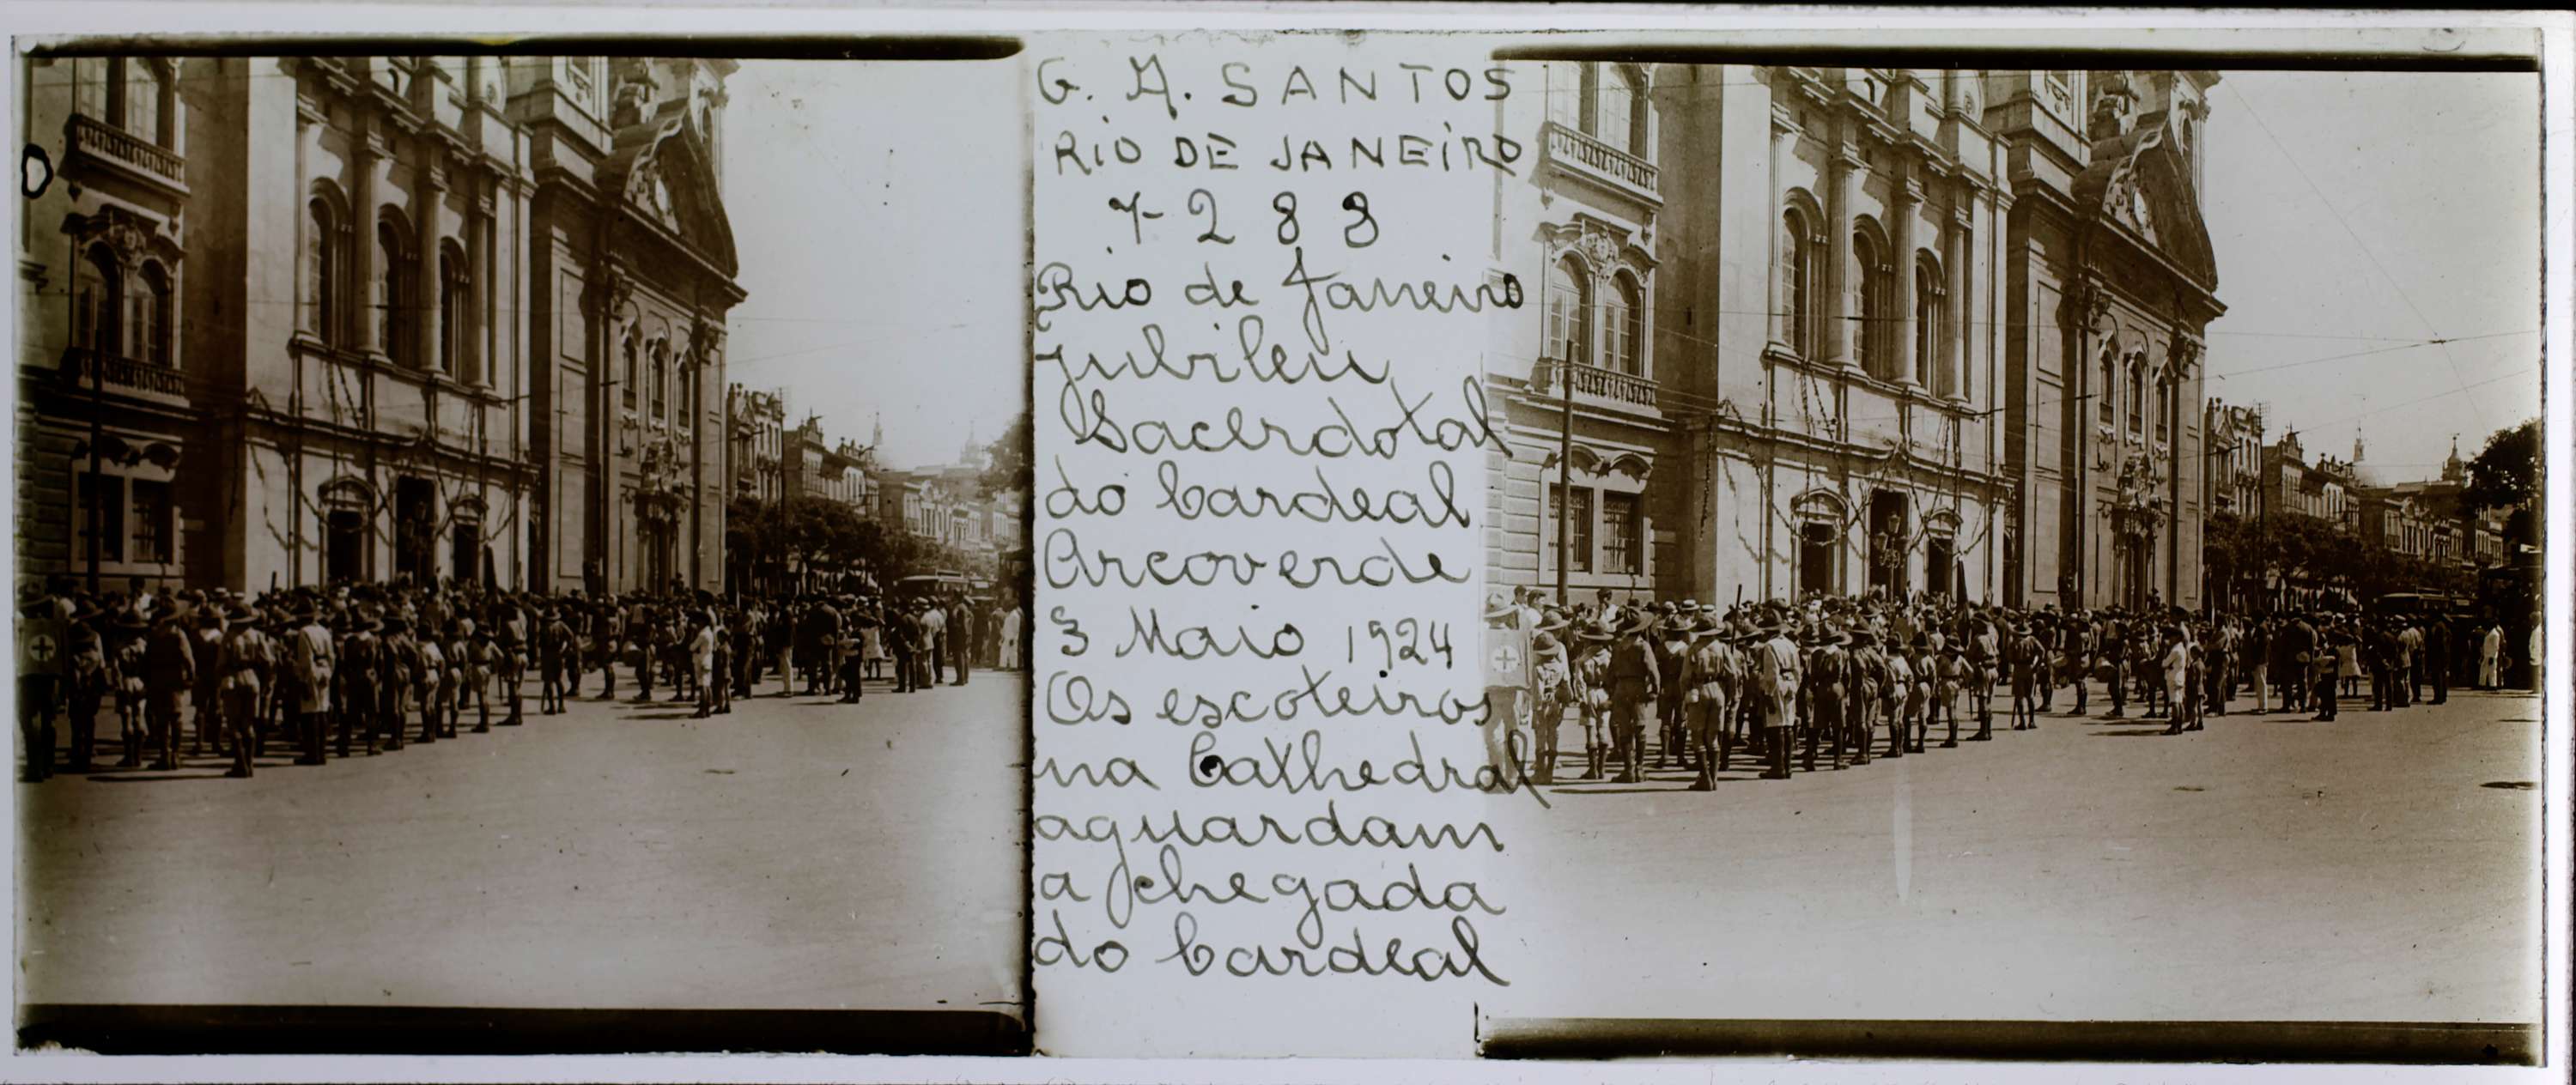 G. A. SANTOS
RIO DE JANEIRO
7288
Rio de Janeiro
jubileu
Sacerdotal
do Cardeal
Arcoverde
3 Maio 1924
Os escoteiros
na Cathedral
aguardam
a chegada
do Cardeal